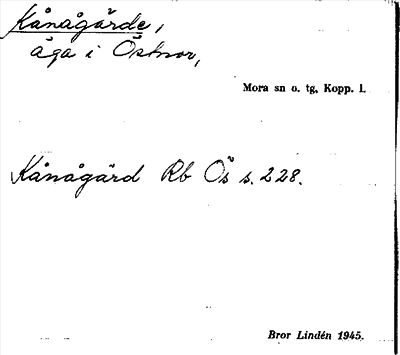 Kånågärde,
äga i Östnor,
Mora sn o. tg, Kopp. l.
Kånågärd Rb Ös s. 228.
Bror Lindén 1945.